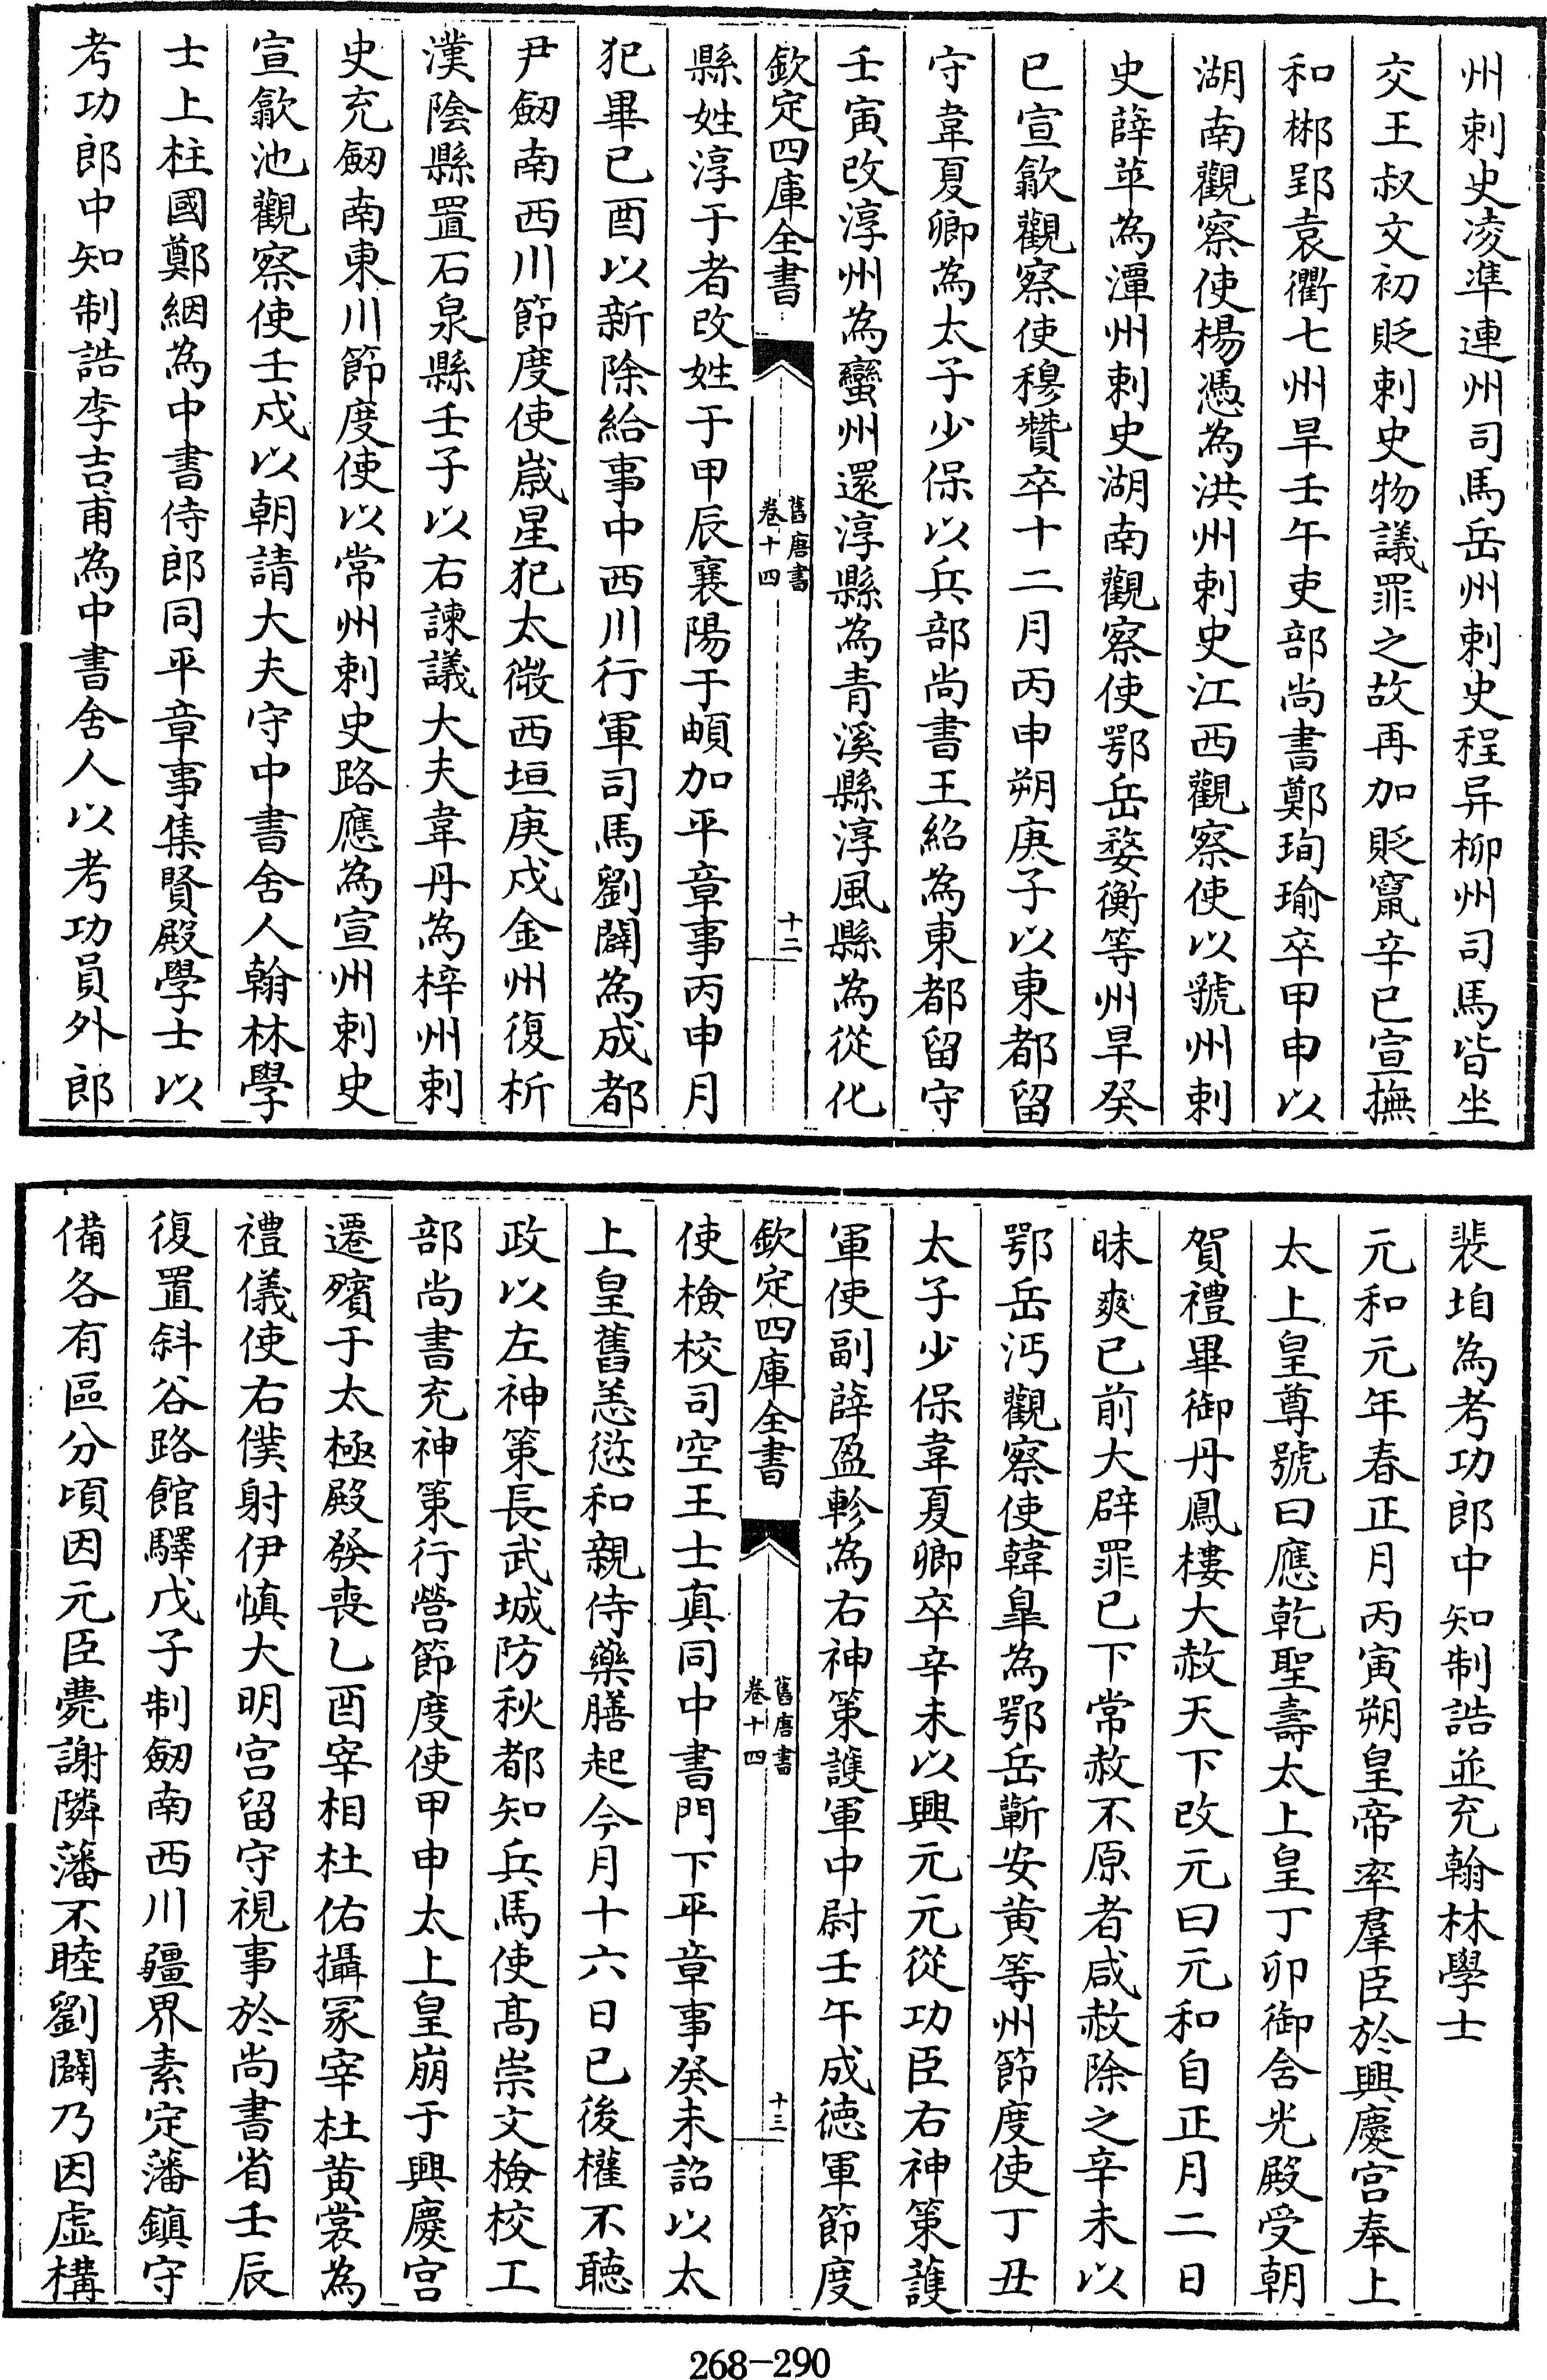 州刺史凌準連州司馬岳州刺史程异柳州司馬皆坐
交王叔文初貶刺史物議罪之故再加貶竄辛巳宣撫
和郴郢袁衢七州旱壬午吏部尚書鄭珣瑜卒甲申以
湖南觀察使楊憑為洪州刺史江西觀察使以虢州刺
史薛苹為潭州刺史湖南觀察使鄂岳婺衡等州旱癸
巳宣歙觀察使穆贊卒十二月丙申朔庚子以東都留
守韋夏卿為太子少保以兵部尚書王紹為東都留守
壬寅改淳州為蠻州還淳縣為青溪縣淳風縣為從化
欽定四庫全書
舊唐書
卷十四
十二
縣姓淳于者改姓于甲辰襄陽于頔加平章事丙申月
犯畢已酉以新除給事中西川行軍司馬劉闢為成都
尹劒南西川節度使歲星犯太微西垣庚戌金州復析
漢陰縣置石泉縣壬子以右諫議大夫韋丹為梓州刺
史充劒南東川節度使以常州刺史路應為宣州刺史
宣歙池觀察使壬戌以朝請大夫守中書舍人翰林學
士上柱國鄭絪為中書侍郎同平章事集賢殿學士以
考功郎中知制誥李吉甫為中書舍人以考功員外郎
裴垍為考功郎中知制誥並充翰林學士
元和元年春正月丙寅朔皇帝率羣臣於興慶宮奉上
太上皇尊號曰應乾聖壽太上皇丁卯御含光殿受朝
賀禮畢御丹鳳樓大赦天下改元曰元和自正月二日
昧爽已前大辟罪已下常赦不原者咸赦除之辛未以
鄂岳沔觀察使韓皐為鄂岳蘄安黄等州節度使丁丑
太子少保韋夏卿卒辛未以興元元從功臣右神策護
軍使副薛盈軫為右神策護軍中尉壬午成德軍節度
欽定四庫全書
舊唐書
卷十四
十三
使檢校司空王士真同中書門下平章事癸未詔以太
上皇舊恙愆和親侍藥膳起今月十六日已後權不聽
政以左神策長武城防秋都知兵馬使髙崇文檢校工
部尚書充神策行營節度使甲申太上皇崩于興慶宮
遷殯于太極殿發喪乙酉宰相杜佑攝冢宰杜黄裳為
禮儀使右僕射伊慎大明宫留守視事於尚書省壬辰
復置斜谷路館驛戊子制劒南西川疆界素定藩鎮守
備各有區分頃因元臣薨謝隣藩不睦劉闢乃因虛構
268-290